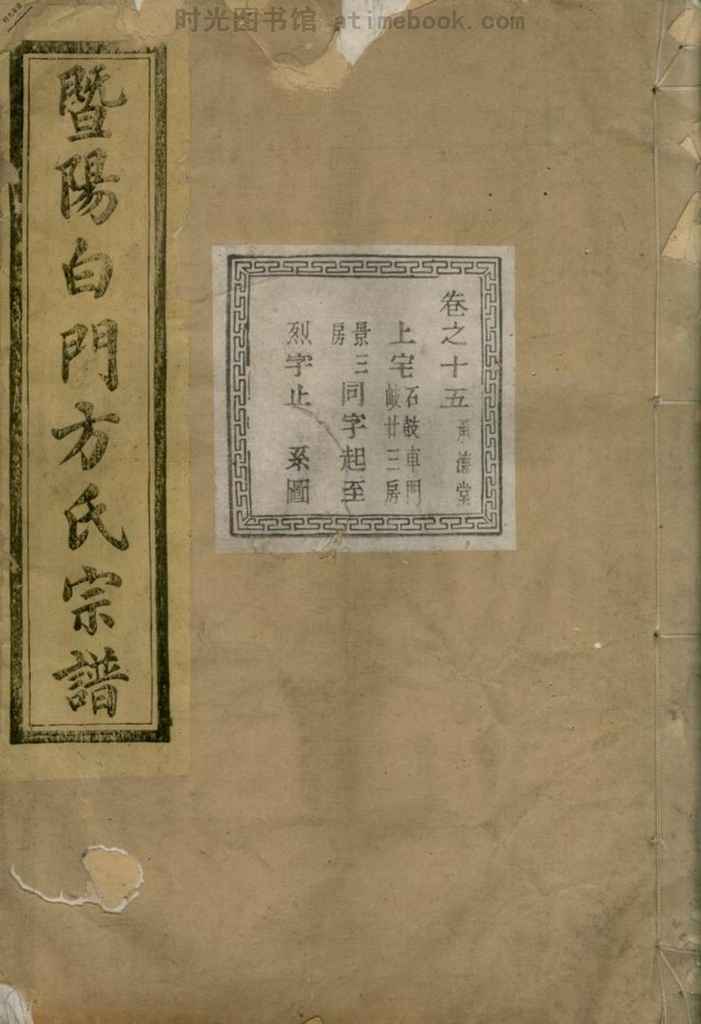 时光图书馆 atimebook.com
暨陽白門方氏宗譜
卷之十五 堂
上宅 石鼓車門 廿三房
景三房 同字起至
烈字止 系圖